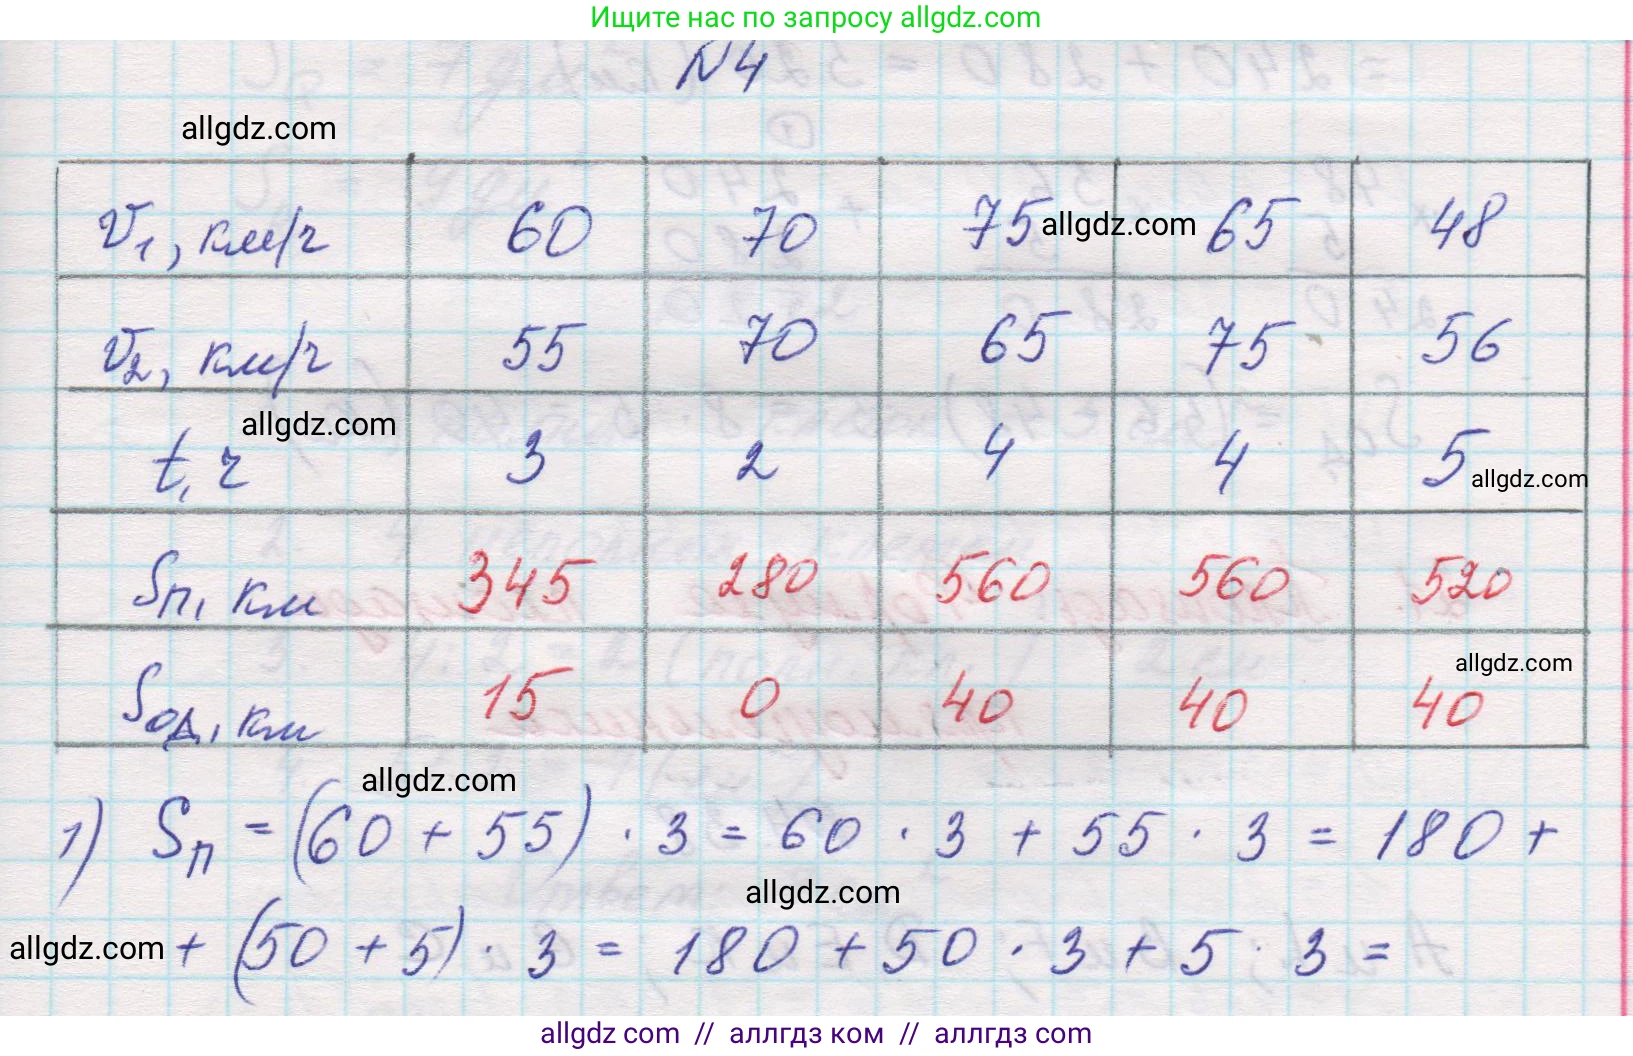 Ищите нас по запросу allgdz.com
N4
allgdz.com
V1, км/ч 60 70 75 allgdz.com 65 48
V2, км/ч 55 70 65 75 56
allgdz.com
t, ч 3 2 4 4 5 allgdz.com
Sп, км 345 280 560 560 520
allgdz.com
Sод, км 15 0 40 40 40
allgdz.com
1) Sп = (60 + 55) · 3 = 60 · 3 + 55 · 3 = 180 +
allgdz.com
allgdz.com + (50 + 5) · 3 = 180 + 50 · 3 + 5 · 3 =
allgdz com // аллгдз ком // аллгдз com